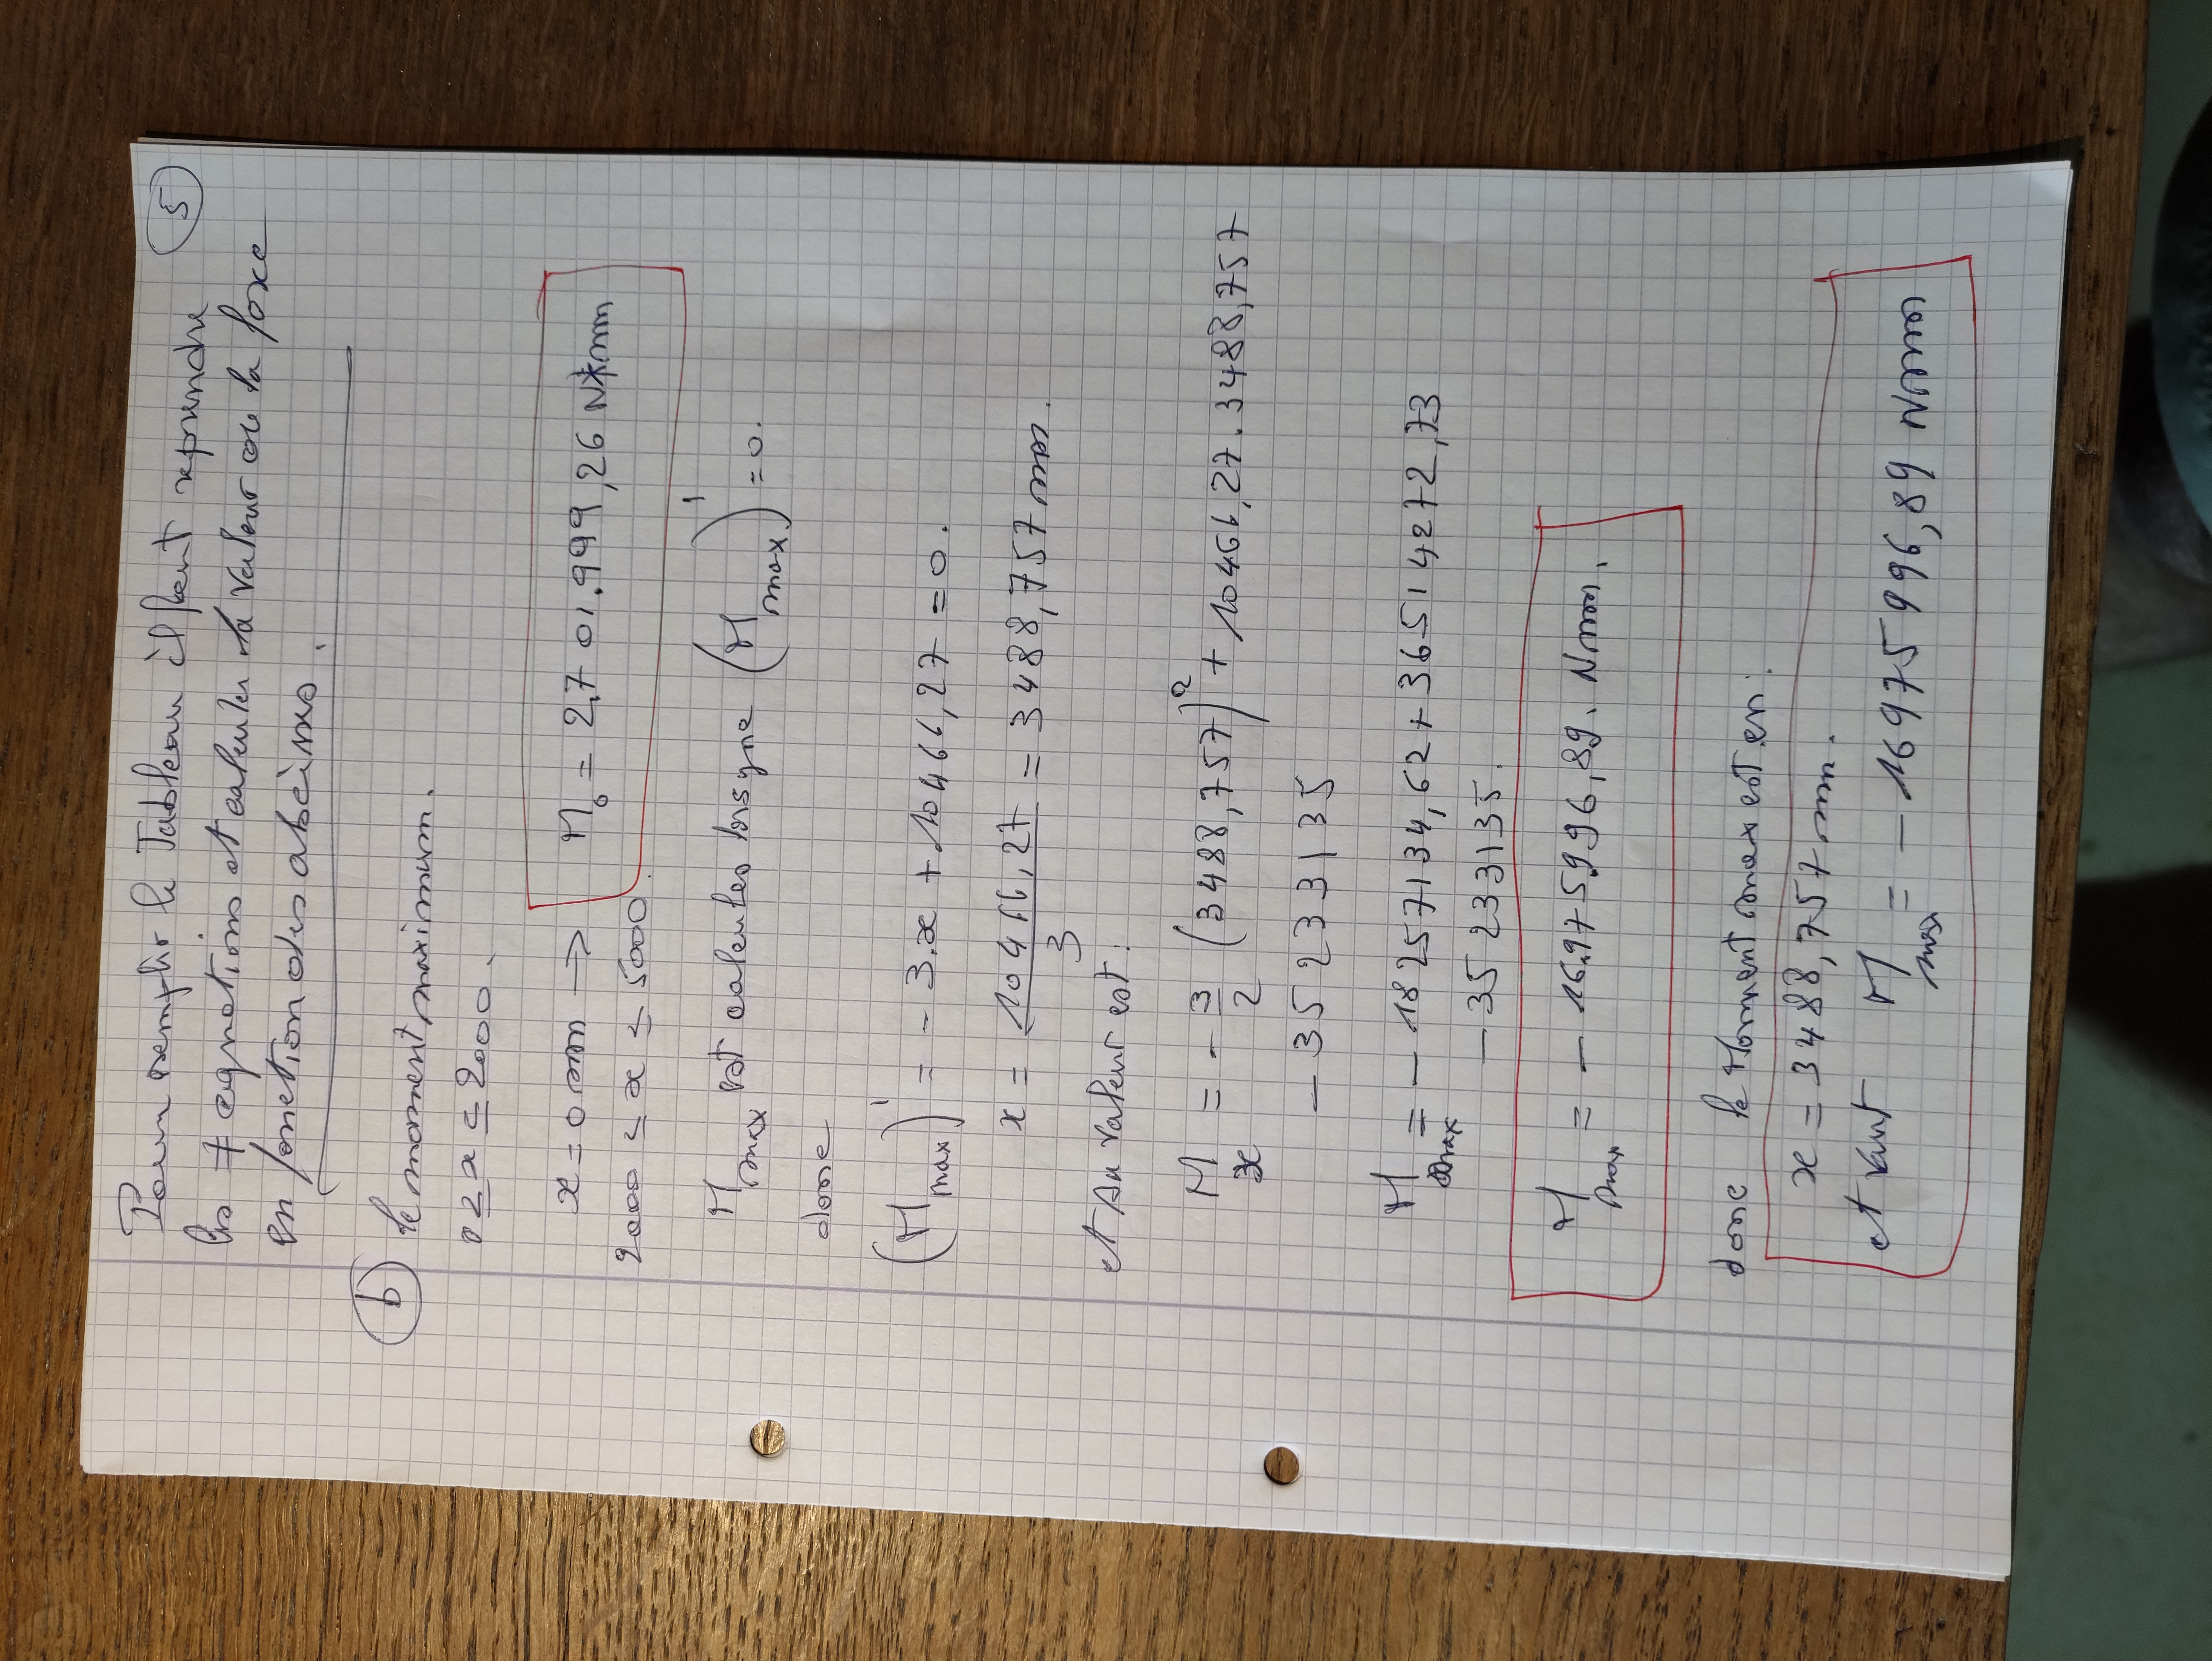 5
Pour remplir le Tableau il faut reprendre
les ≠ equations et calculer la valeur de la force
en fonction des abscisses.
b le moment maximum.
0 ≤ x ≤ 2000.
x = 0 mm → M0 = 2,701.999,26 N*mm
2000 ≤ x ≤ 5000
Mmax est calculée lorsque (Mmax)' = 0.
donc
(Mmax)' = - 3.x + 10466,27 = 0.
x = 10466,27 / 3 = 3488,757 mm.
et sa valeur est :
Mx = - 3/2 (3488,757)² + 10466,27 . 3488,757
- 35233135
Mmax = - 18257134,62 + 36514272,73
- 35233135.
Mmax = - 16.975.996,89. Nmm.
donc le Moment max est en :
x = 3488,757 mm.
et vaut Mmax = - 16975996,89 Nmm